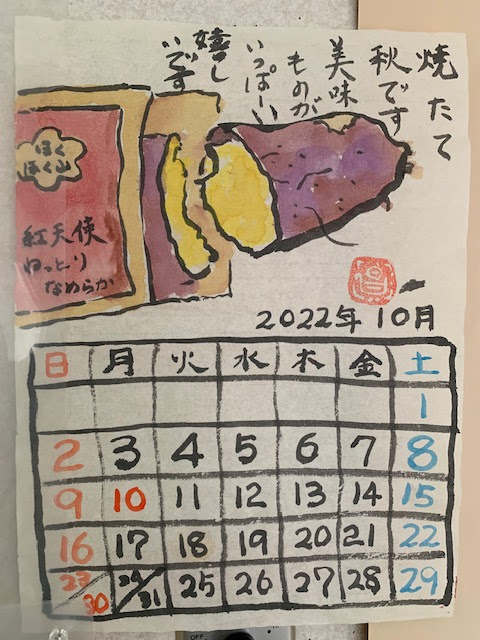 焼たて
秋です
美味
ものが
いっぱーい
嬉し
いです
ほく
ほく山
紅天使
ねっとり
なめらか
昌
2022年10月
日 月 火 水 木 金 土
1
2 3 4 5 6 7 8
9 10 11 12 13 14 15
16 17 18 19 20 21 22
23/30 24/31 25 26 27 28 29
OFF